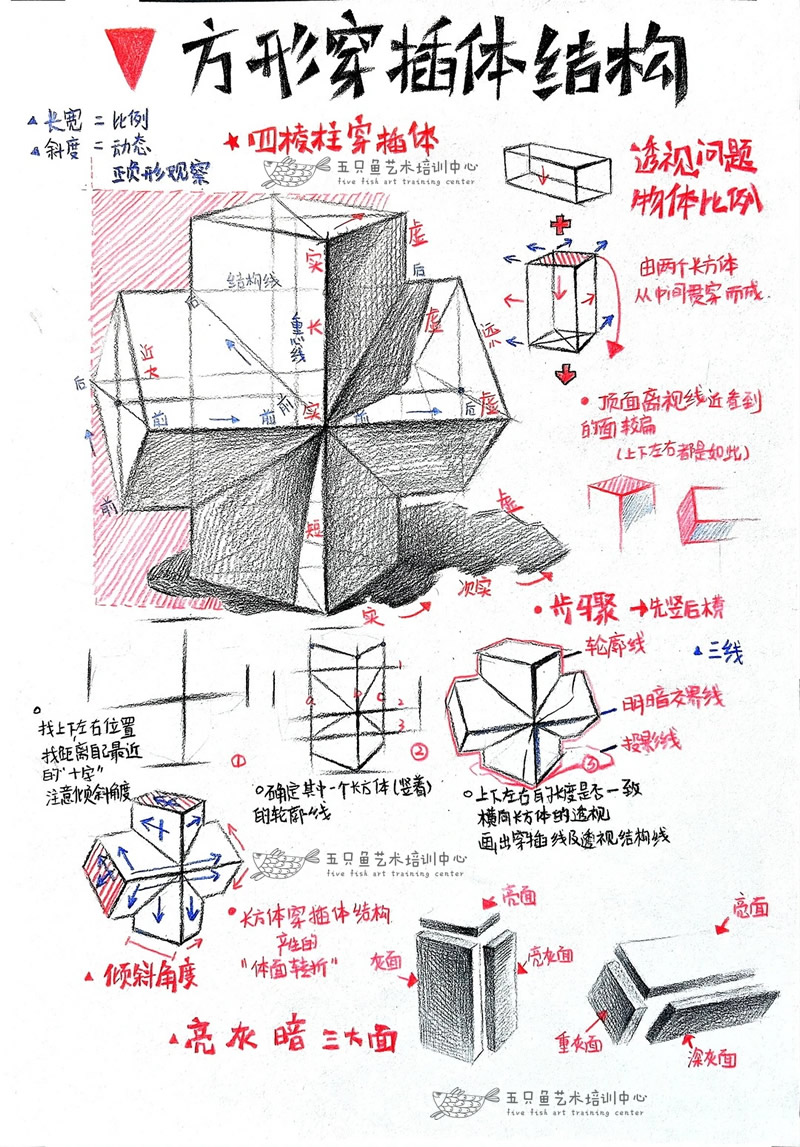 方形穿插体结构
▲长宽=比例
▲斜度=动态
正负形观察
★四棱柱穿插体
五只鱼艺术培训中心
five fish art training center
透视问题
物体比例
由两个长方体
从中间贯穿而成.
•顶面离视线近看到
的面较扁
(上下左右都是如此)
实
虚
结构线
后
后
长
重心线
虚
远
近
大
后
前
前
前
实
前
后
虚
前
短
虚
实
次实
•步骤→先竖后横
▲三线
轮廓线
明暗交界线
投影线
找上下左右位置
找距离自己最近
的"十字"
注意倾斜角度
①
a
b
c
1
2
3
②
确定其中一个长方体(竖着)
的轮廓线
③
上下左右的长度是否一致
横向长方体的透视
画出穿插线及透视结构线
五只鱼艺术培训中心
five fish art training center
•长方体穿插体结构
产生的
"体面转折"
▲倾斜角度
▲亮灰暗三大面
亮面
灰面
亮灰面
亮面
重灰面
深灰面
五只鱼艺术培训中心
five fish art training center